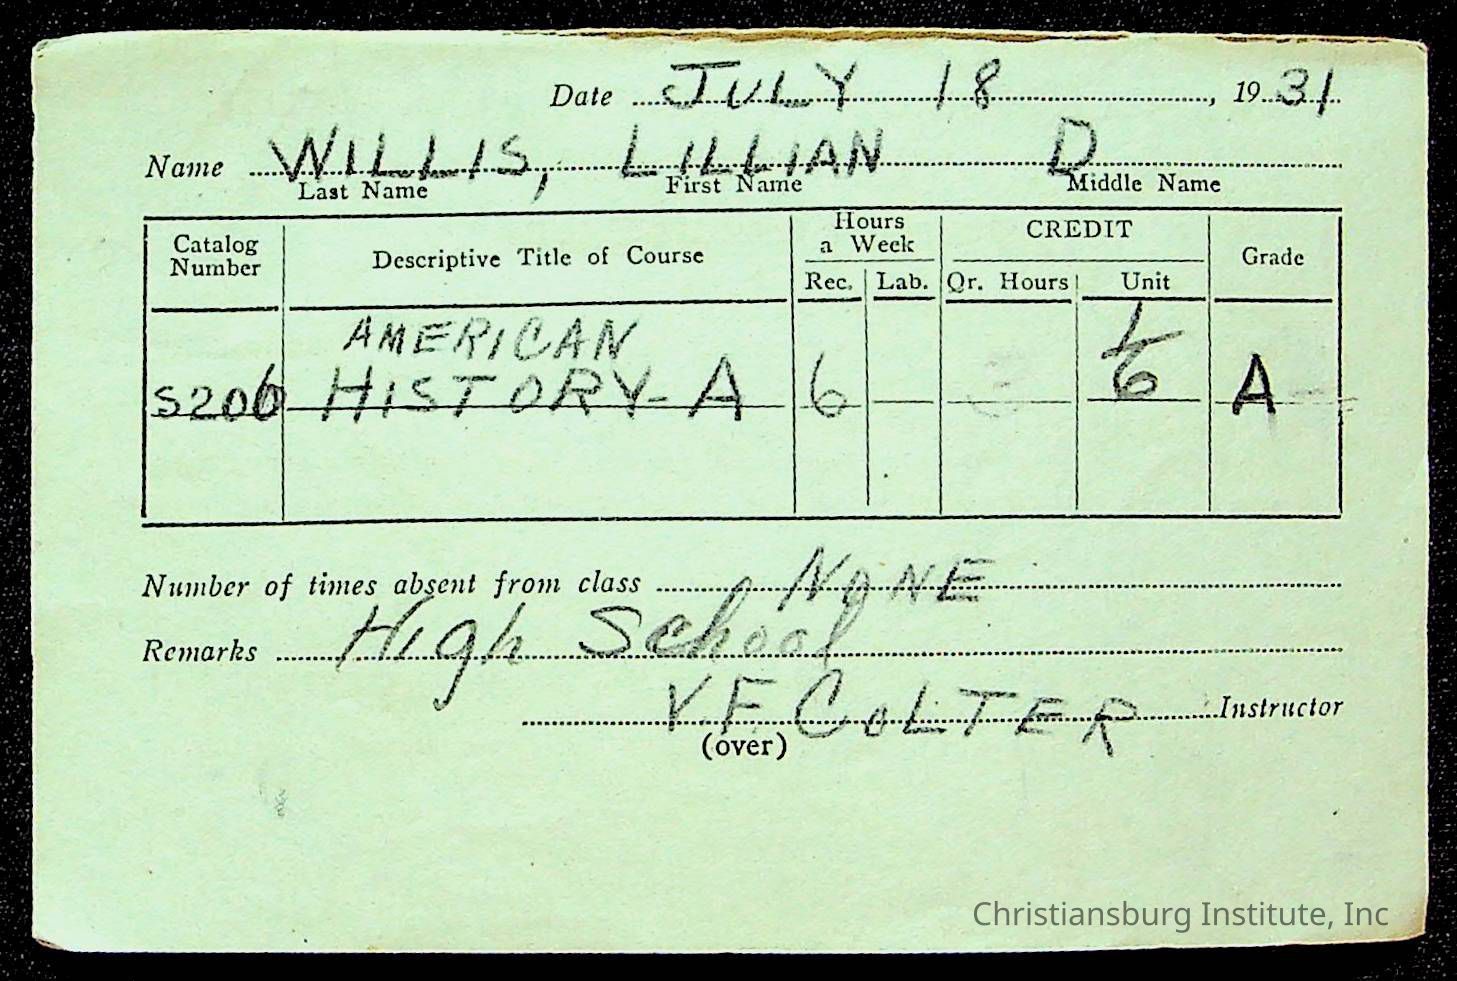 Date JULY 18, 1931
Name WILLIS, LILLIAN D
Last Name First Name Middle Name
Catalog Number Descriptive Title of Course Hours a Week CREDIT Grade
Rec. Lab. Qr. Hours Unit
AMERICAN 1
S206 HISTORY-A 6 6 A
Number of times absent from class NONE
Remarks High School
V.F. COLTER Instructor
(over)
Christiansburg Institute, Inc